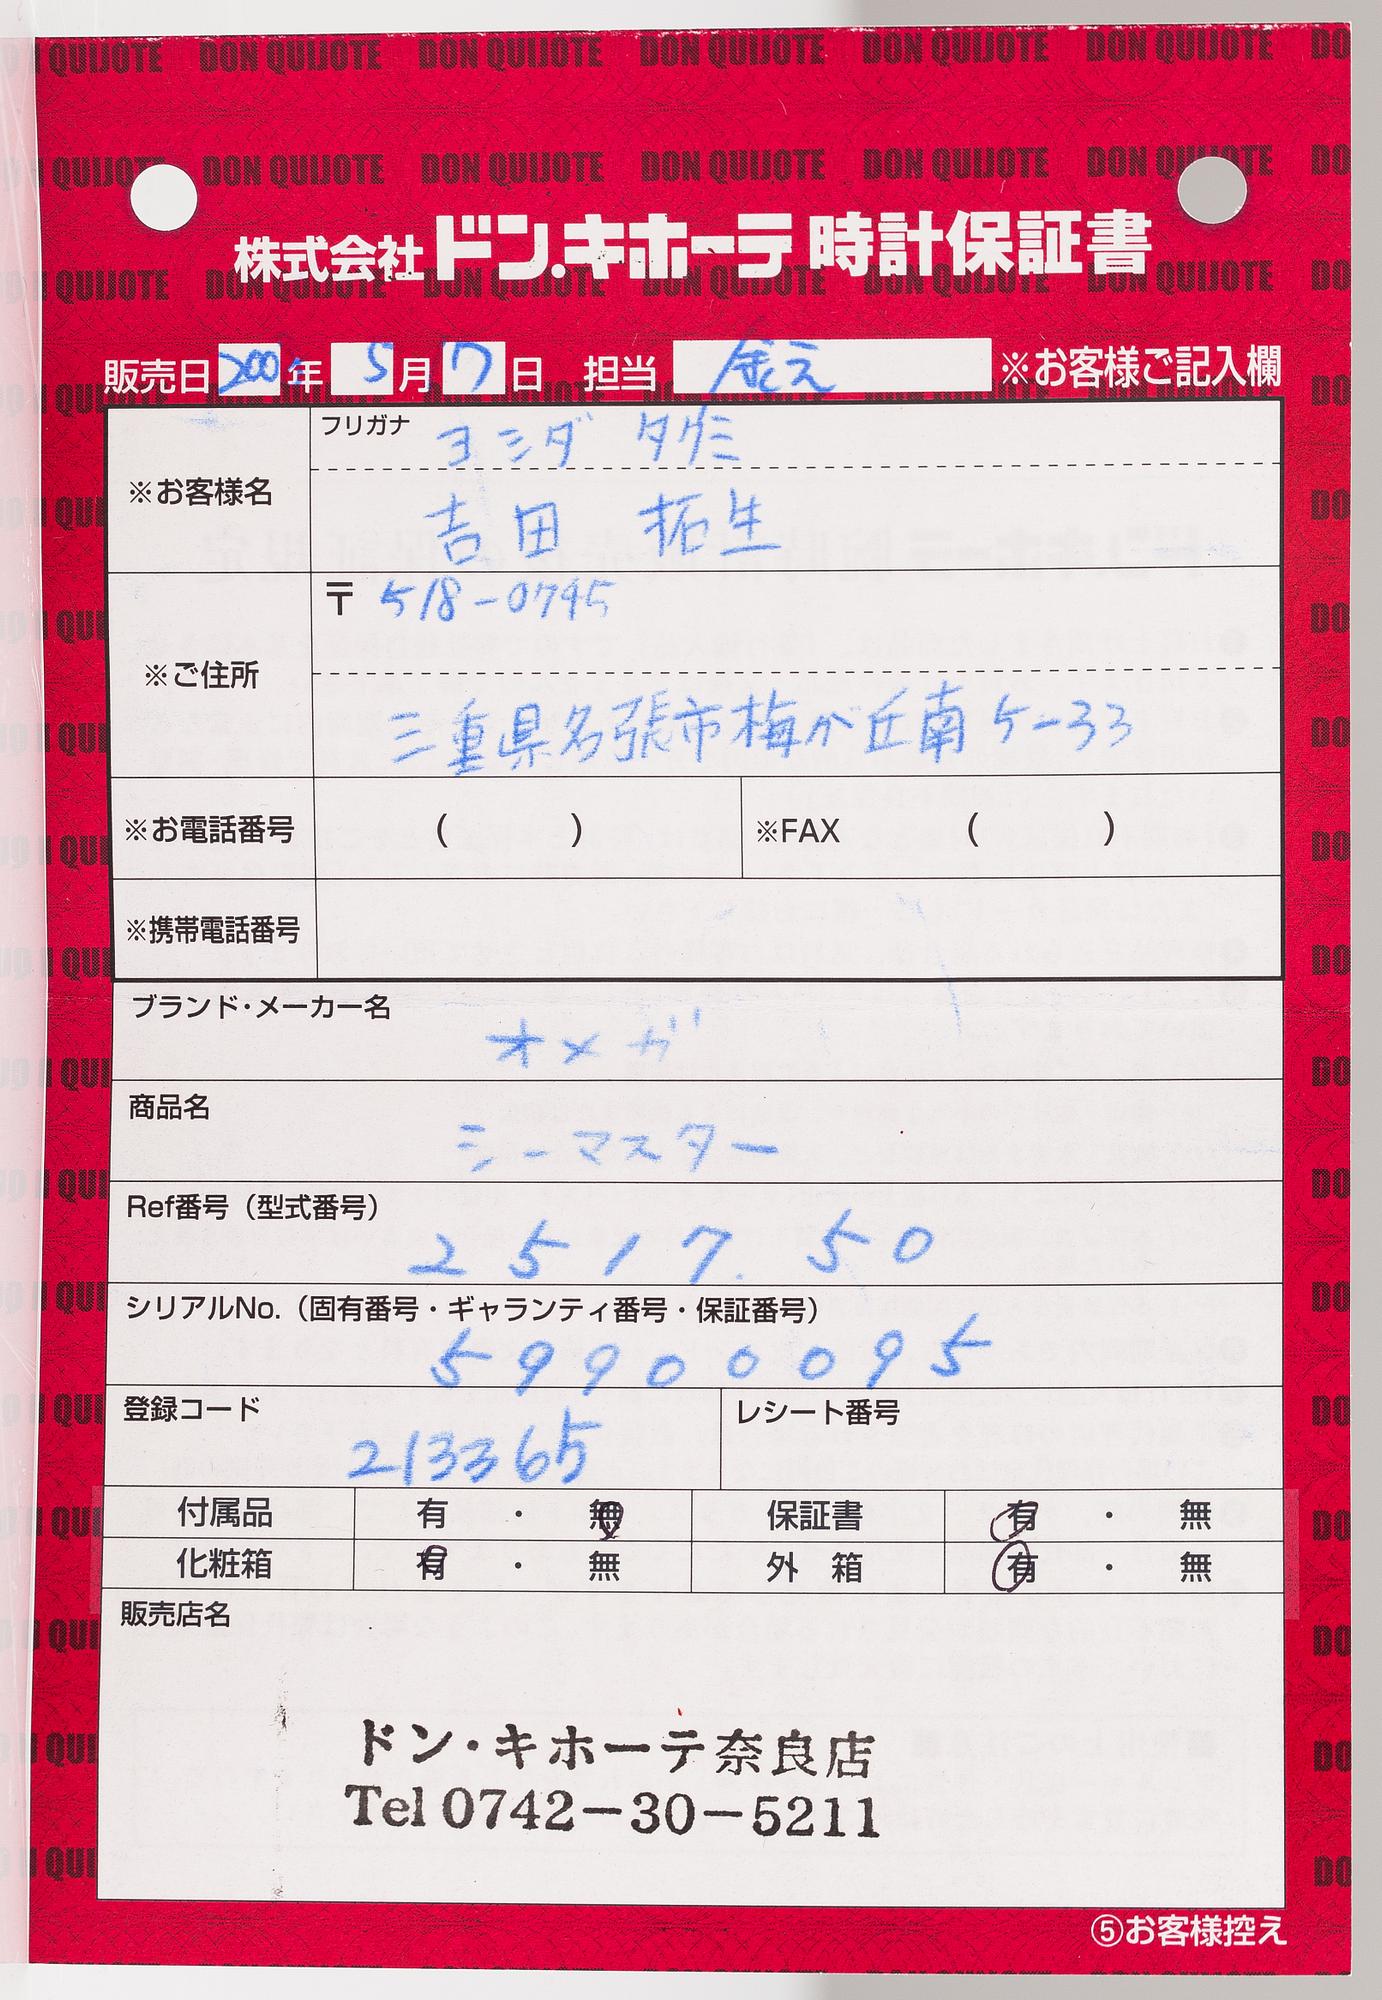 DON QUIJOTE DON QUIJOTE DON QUIJOTE DON QUIJOTE DON QUIJOTE
DON QUIJOTE DON QUIJOTE DON QUIJOTE DON QUIJOTE DON QUIJOTE
株式会社ドン.キホーテ時計保証書
DON QUIJOTE DON QUIJOTE DON QUIJOTE DON QUIJOTE
販売日 年 5月 7日 担当 ※お客様ご記入欄
※お客様名
フリガナ ヨシダ タクミ
吉田 拓生
※ご住所
〒 518-0745
三重県名張市梅が丘南5-33
※お電話番号 ( ) ※FAX ( )
※携帯電話番号
ブランド・メーカー名
オメガ
商品名
シーマスター
Ref番号（型式番号）
2517.50
シリアルNo.（固有番号・ギャランティ番号・保証番号）
59900095
登録コード レシート番号
213365
付属品 有 ・ 無 保証書 有 ・ 無
化粧箱 有 ・ 無 外 箱 有 ・ 無
販売店名
ドン・キホーテ奈良店
Tel 0742-30-5211
⑤お客様控え